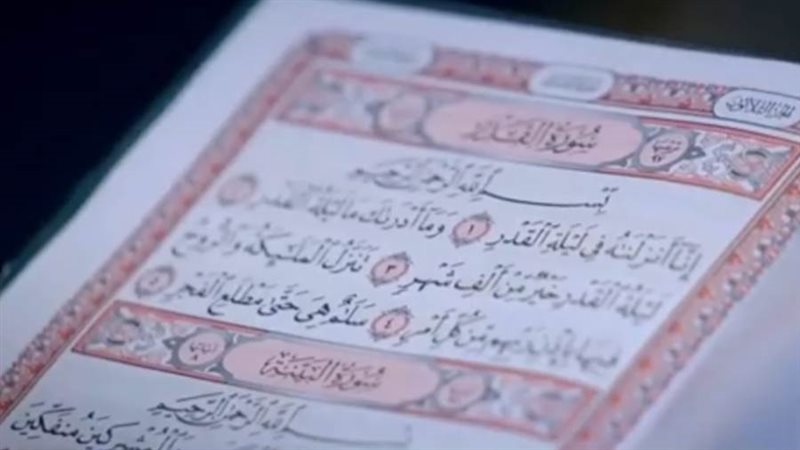 الجزء الثلاثون
سُورَةُ القَدْرِ
بِسْمِ اللَّهِ الرَّحْمَٰنِ الرَّحِيمِ
إِنَّا أَنزَلْنَٰهُ فِى لَيْلَةِ ٱلْقَدْرِ ١ وَمَآ أَدْرَىٰكَ مَا لَيْلَةُ ٱلْقَدْرِ ٢
لَيْلَةُ ٱلْقَدْرِ خَيْرٌ مِّنْ أَلْفِ شَهْرٍ ٣ تَنَزَّلُ ٱلْمَلَٰٓئِكَةُ وَٱلرُّوحُ
فِيهَا بِإِذْنِ رَبِّهِم مِّن كُلِّ أَمْرٍ ٤ سَلَٰمٌ هِىَ حَتَّىٰ مَطْلَعِ ٱلْفَجْرِ ٥
سُورَةُ البَيِّنَةِ
بِسْمِ اللَّهِ الرَّحْمَٰنِ الرَّحِيمِ
وَٱلْمُشْرِكِينَ مُنفَكِّينَ